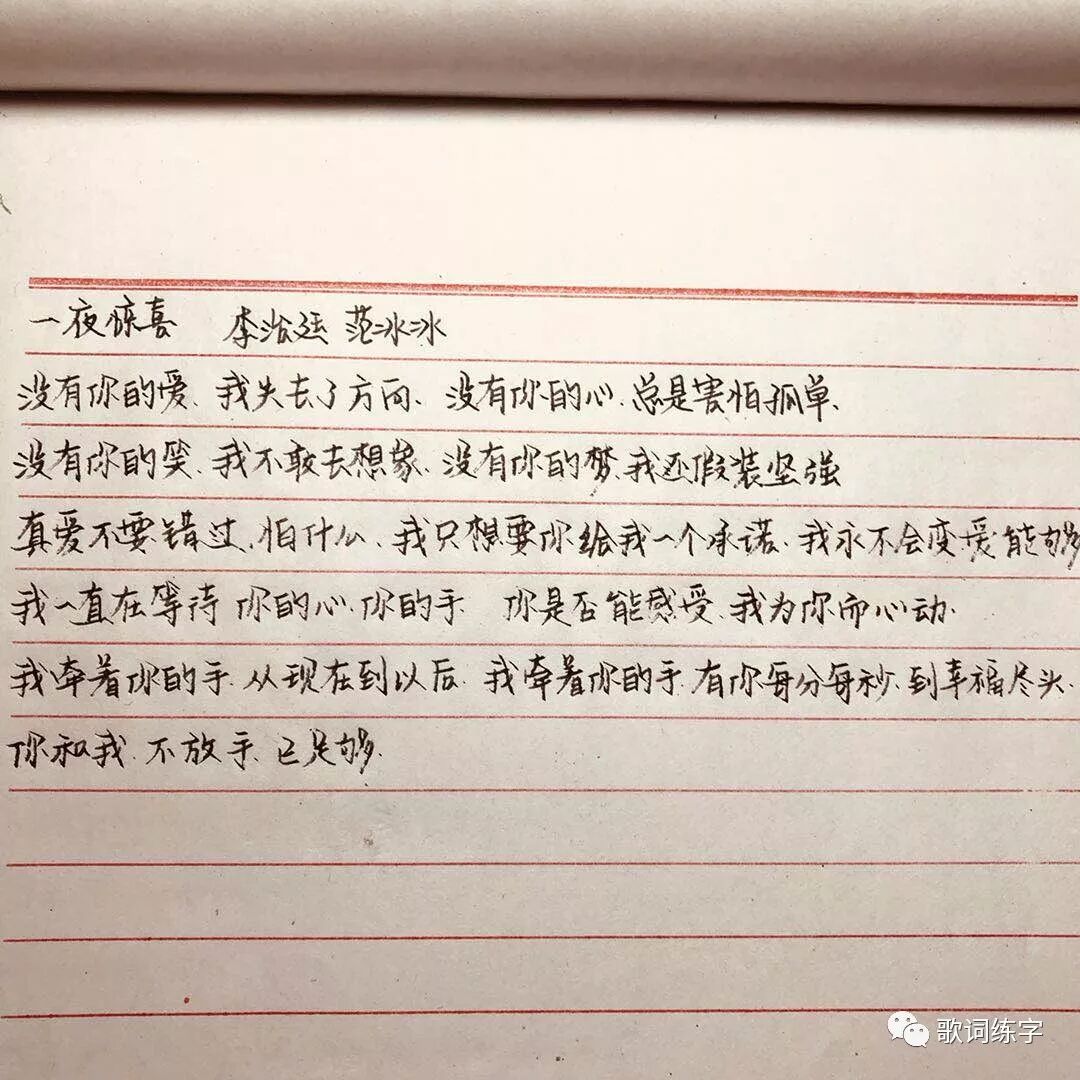 一夜惊喜 李治廷 范冰冰
没有你的爱、我失去了方向、没有你的心、总是害怕孤单、
没有你的笑、我不敢去想象、没有你的梦、我还假装坚强
真爱不要错过、怕什么、我只想要你给我一个承诺、我永不会变爱能够
我一直在等待 你的心、你的手 你是否能感受、我为你而心动、
我牵着你的手、从现在到以后、我牵着你的手、有你每分每秒、到幸福尽头、
你和我、不放手、已足够、
歌词练字